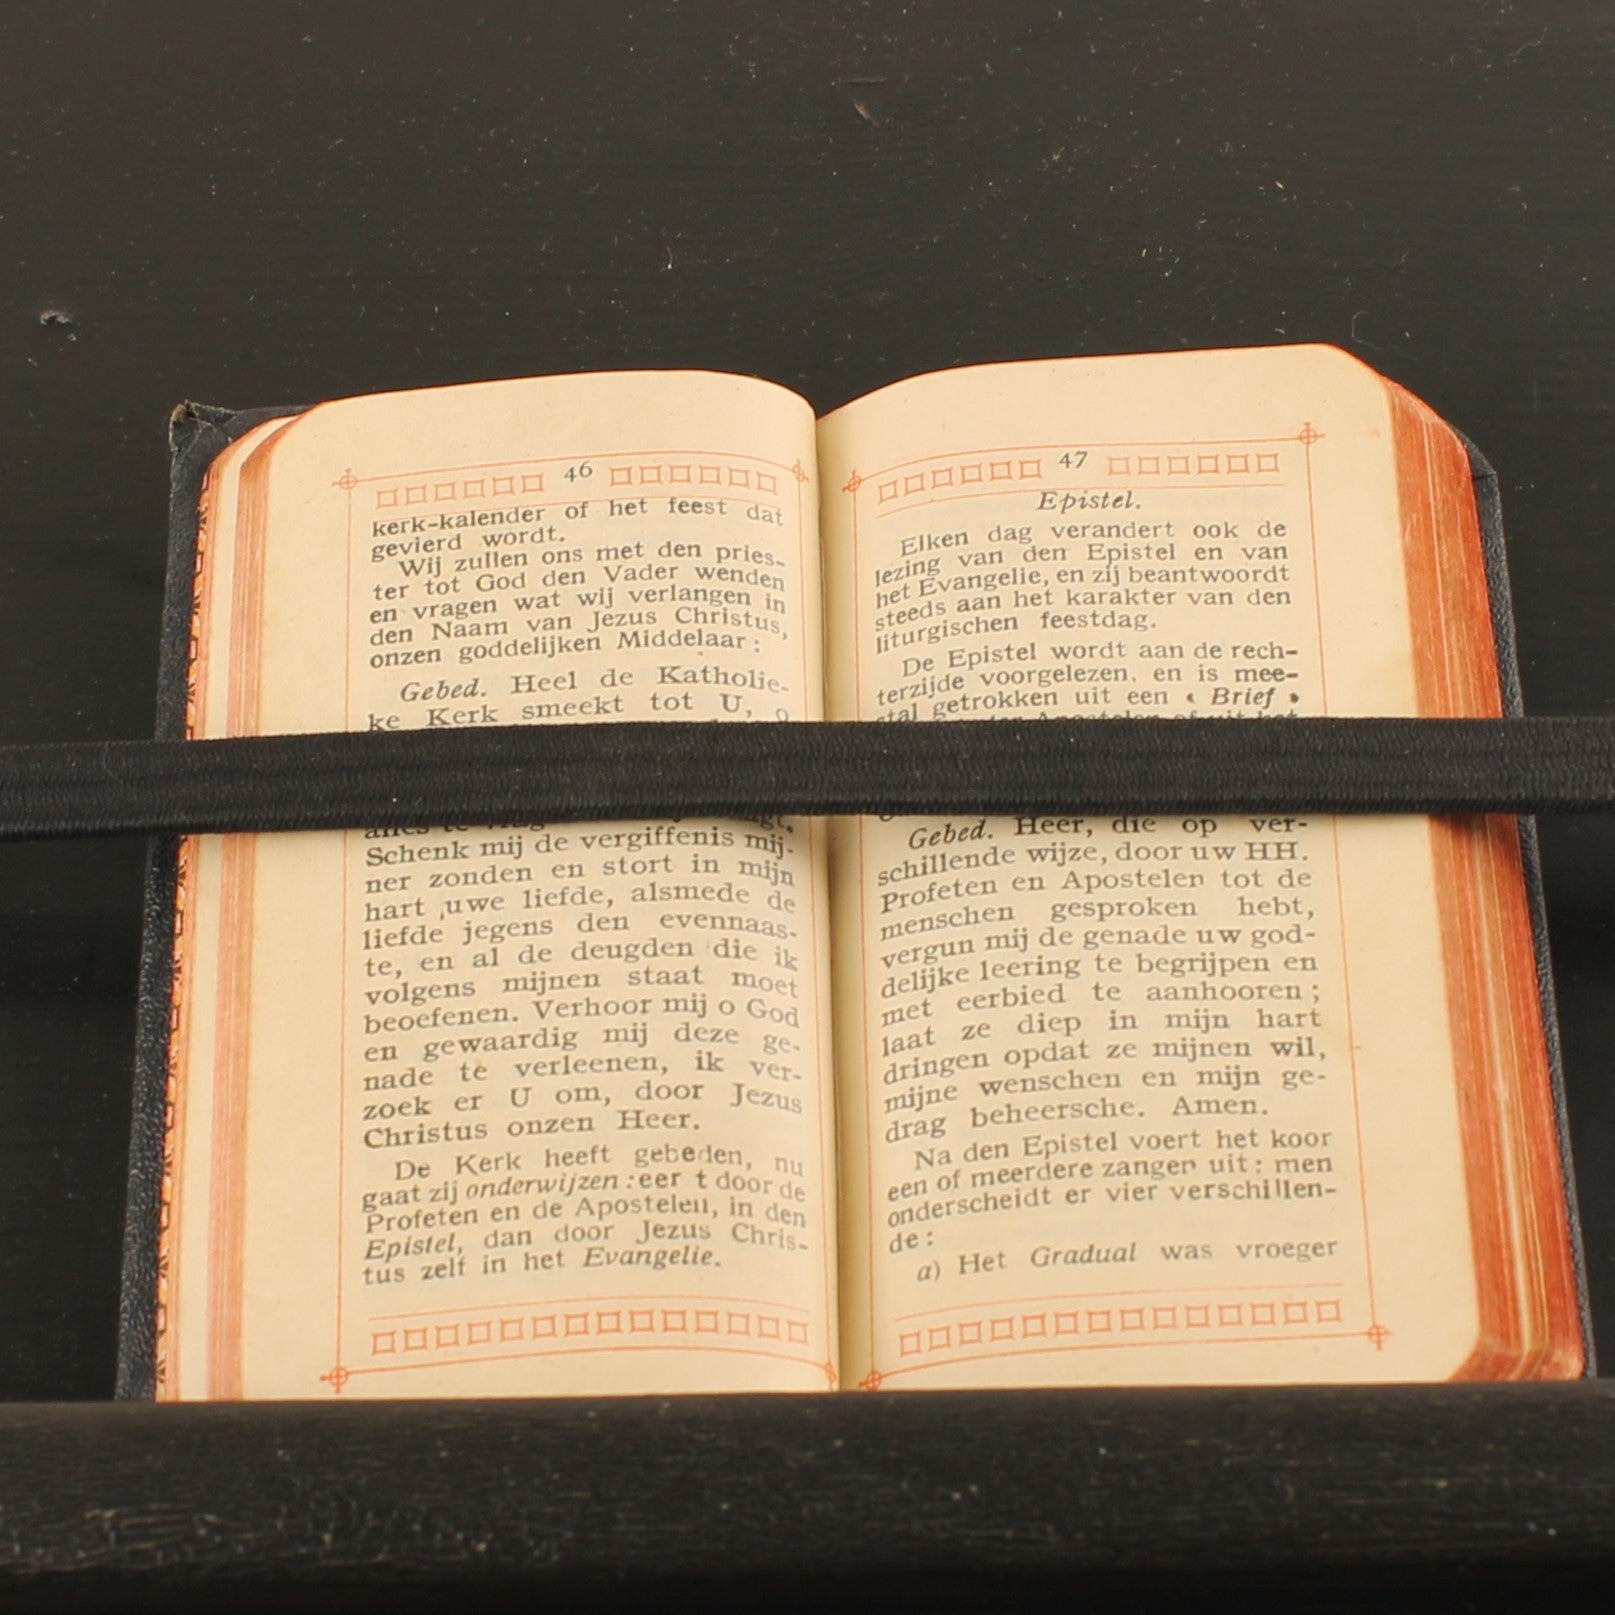 46
kerk-kalender of het feest dat
gevierd wordt.
Wij zullen ons met den pries-
ter tot God den Vader wenden
en vragen wat wij verlangen in
den Naam van Jezus Christus,
onzen goddelijken Middelaar :
Gebed. Heel de Katholie-
ke Kerk smeekt tot U, o
alles te
Schenk mij de vergiffenis mij-
ner zonden en stort in mijn
hart uwe liefde, alsmede de
liefde jegens den evennaas-
te, en al de deugden die ik
volgens mijnen staat moet
beoefenen. Verhoor mij o God
en gewaardig mij deze ge-
nade te verleenen, ik ver-
zoek er U om, door Jezus
Christus onzen Heer.
De Kerk heeft gebeden, nu
gaat zij onderwijzen : eer t door de
Profeten en de Apostelen, in den
Epistel, dan door Jezus Chris-
tus zelf in het Evangelie.
47
Epistel.
Elken dag verandert ook de
lezing van den Epistel en van
het Evangelie, en zij beantwoordt
steeds aan het karakter van den
liturgischen feestdag.
De Epistel wordt aan de rech-
terzijde voorgelezen, en is mee-
stal getrokken uit een « Brief »
der Apostelen of uit het
Gebed. Heer, die op ver-
schillende wijze, door uw HH.
Profeten en Apostelen tot de
menschen gesproken hebt,
vergun mij de genade uw god-
delijke leering te begrijpen en
met eerbied te aanhooren ;
laat ze diep in mijn hart
dringen opdat ze mijnen wil,
mijne wenschen en mijn ge-
drag beheersche. Amen.
Na den Epistel voert het koor
een of meerdere zangen uit : men
onderscheidt er vier verschillen-
de :
a) Het Gradual was vroeger